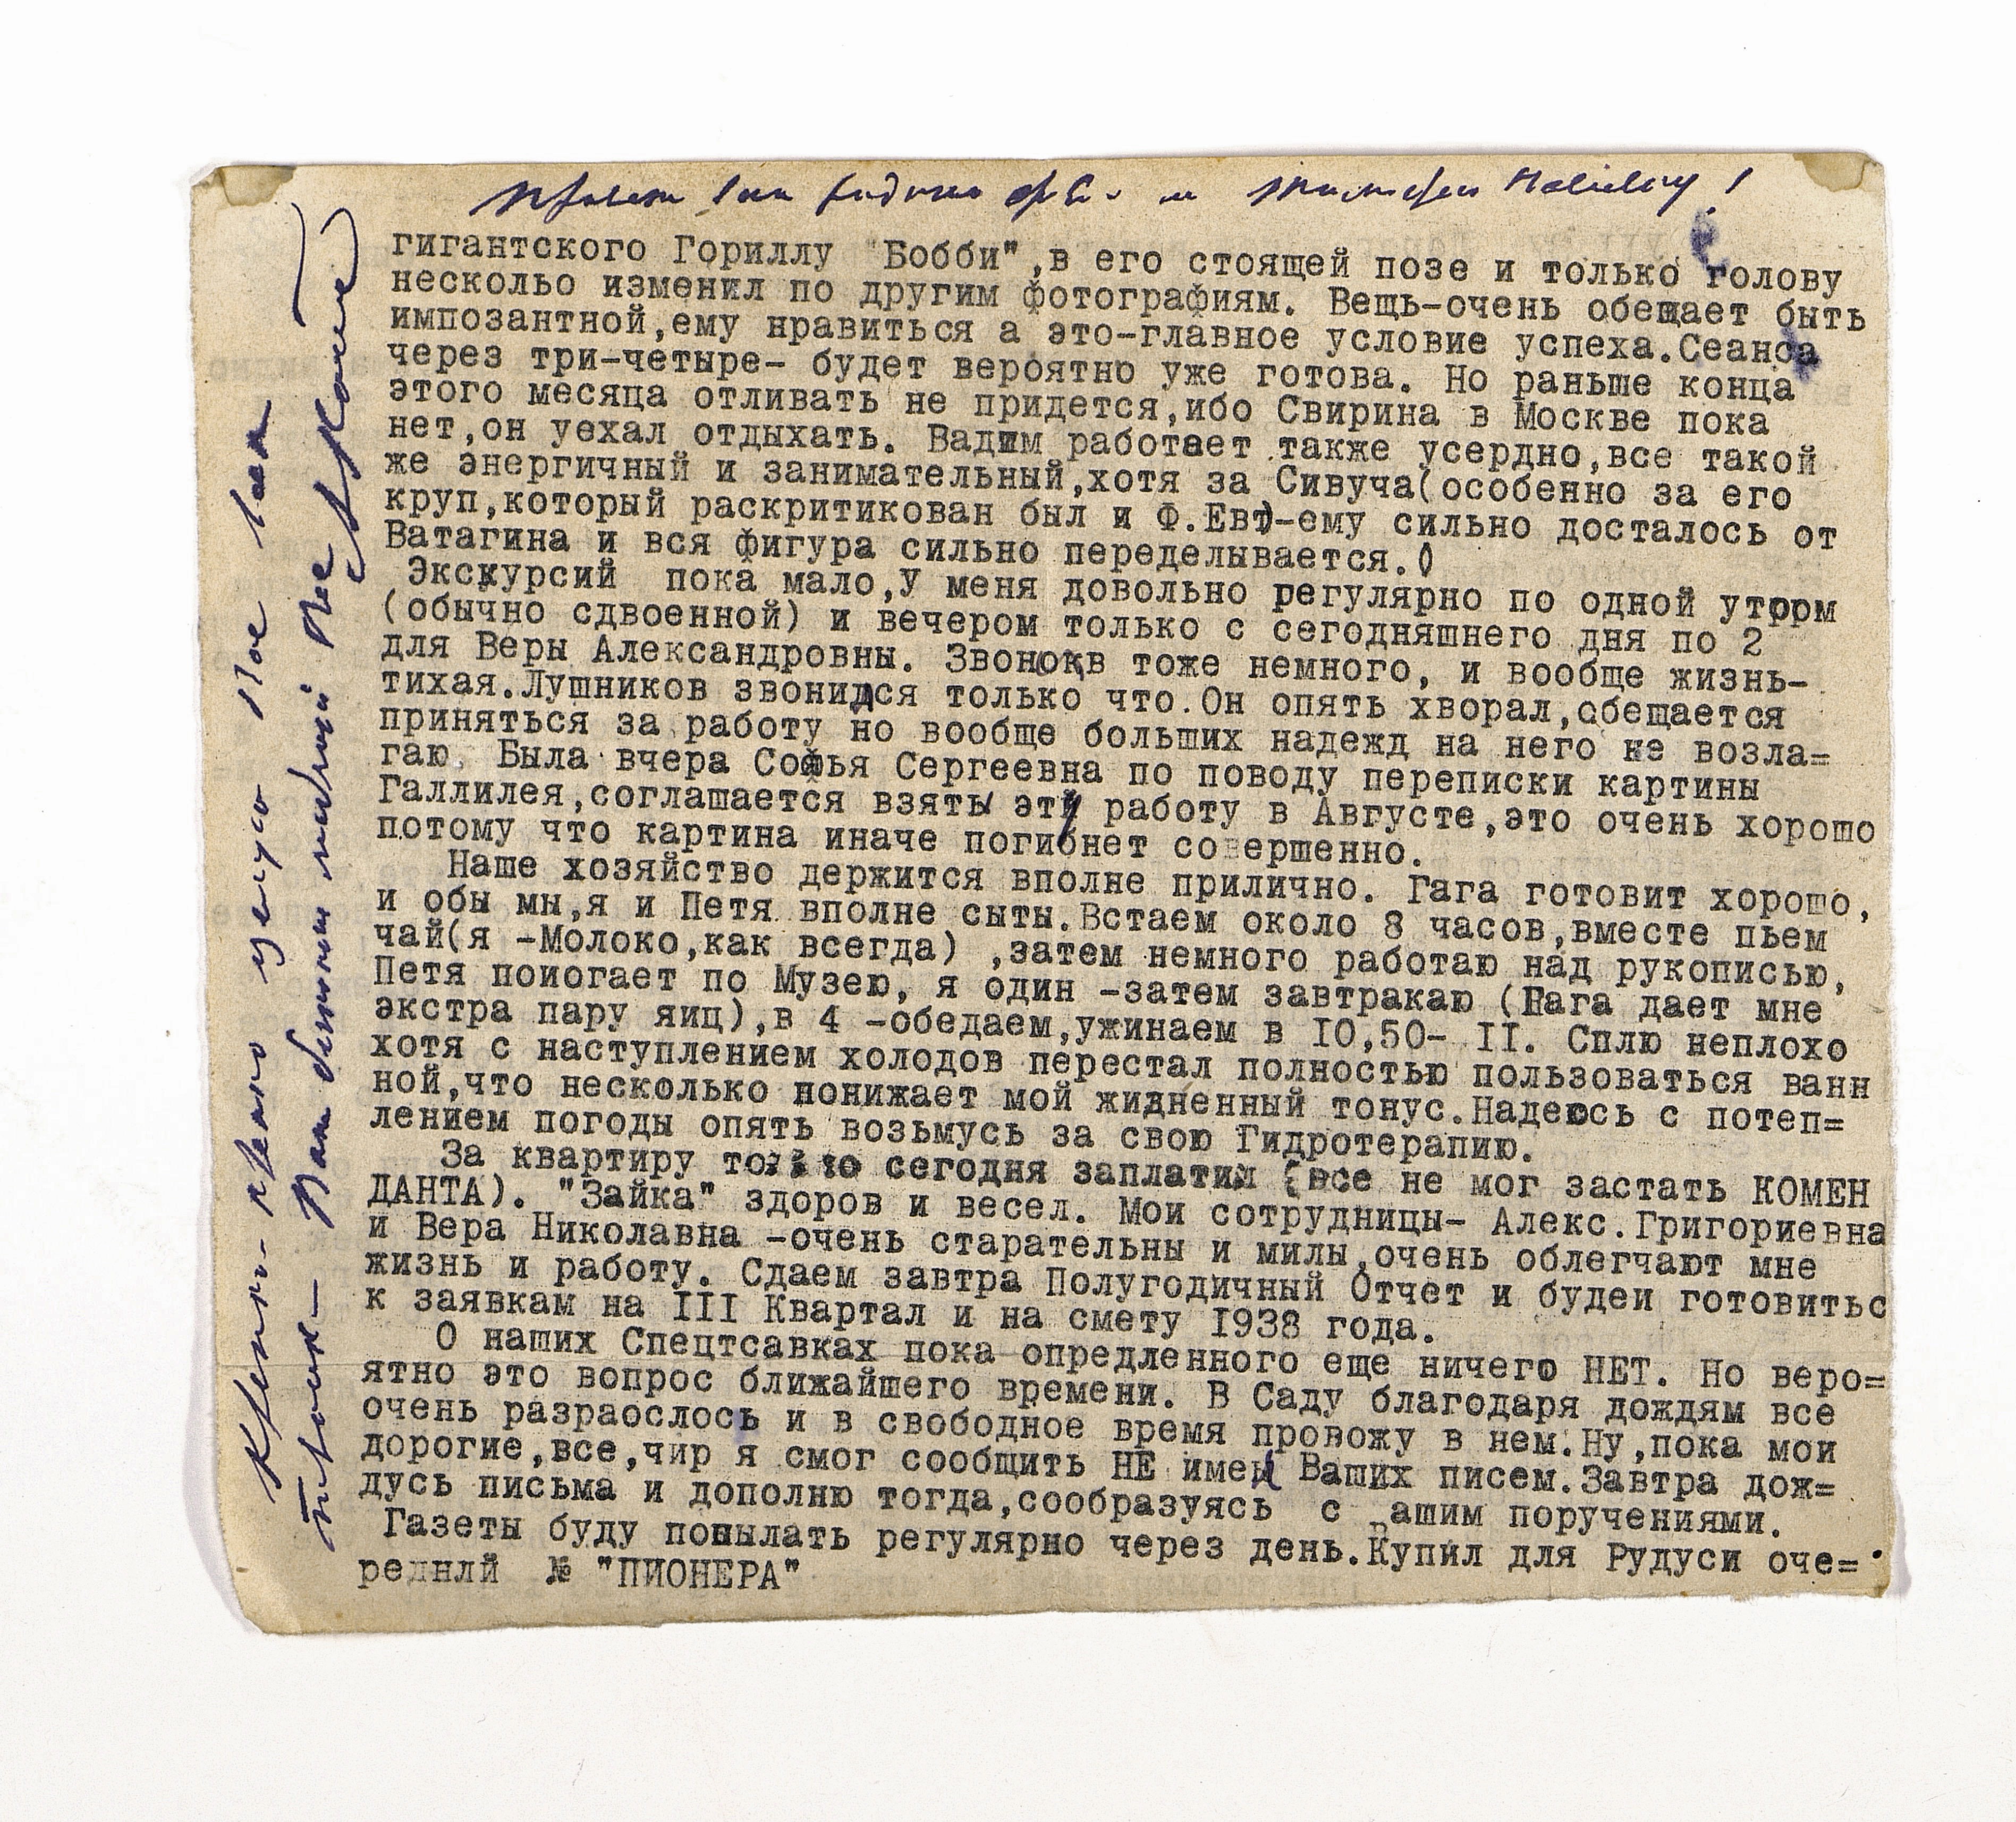 гигантского Гориллу "Бобби",в его стоящей позе и только голову
нескольо изменил по другим фотографиям. Вещь-очень обещает быть
импозантной,ему нравиться а это-главное условие успеха.Сеанса
через три-четыре- будет вероятно уже готова. Но раньше конца
этого месяца отливать не придется,ибо Свирина в Москве пока
нет,он уехал отдыхать. Вадим работает также усердно,все такой
же энергичный и занимательный,хотя за Сивуча(особенно за его
круп,который раскритикован был и Ф.Евт)-ему сильно досталось от
Ватагина и вся фигура сильно переделывается.()
Экскурсий пока мало,У меня довольно регулярно по одной утром
(обычно сдвоенной) и вечером только с сегодняшнего дня по 2
для Веры Александровны. Звонокв тоже немного, и вообще жизнь-
тихая.Лушников звонился только что.Он опять хворал,обещается
приняться за работу но вообще больших надежд на него не возла=
гаю. Была вчера Софья Сергеевна по поводу переписки картины
Галлилея,соглашается взять эту работу в Августе,это очень хорошо
потому что картина иначе погибнет совершенно.
Наше хозяйство держится вполне прилично. Гага готовит хорошо,
и обы мы,я и Петя вполне сыты.Встаем около 8 часов,вместе пьем
чай(я -Молоко,как всегда) ,затем немного работаю над рукописью,
Петя поиогает по Музею, я один -затем завтракаю (Гага дает мне
экстра пару яиц),в 4 -обедаем,ужинаем в IO,50- II. Сплю неплохо
хотя с наступлением холодов перестал полностью пользоваться ванн
ной,что несколько понижает мой жидненный тонус.Надеюсь с потеп=
лением погоды опять возьмусь за свою Гидротерапию.
За квартиру сегодня заплатил (все не мог застать КОМЕН
ДАНТА). "Зайка" здоров и весел. Мои сотрудницы- Алекс.Григориевна
и Вера Николавна -очень старательны и милы,очень облегчают мне
жизнь и работу. Сдаем завтра Полугодичный Отчет и будеи готовитьс
к заявкам на III Квартал и на смету 1938 года.
О наших Спецтсавках пока опредленного еще ничего НЕТ. Но веро=
ятно это вопрос ближайшего времени. В Саду благодаря дождям все
очень разраослось и в свободное время провожу в нем.Ну,пока мои
дорогие,все,чир я смог сообщить НЕ имея Ваших писем.Завтра дож=
дусь письма и дополню тогда,сообразуясь с Вашим поручениями.
Газеты буду понылать регулярно через день.Купил для Рудуси оче=
реднлй № "ПИОНЕРА"